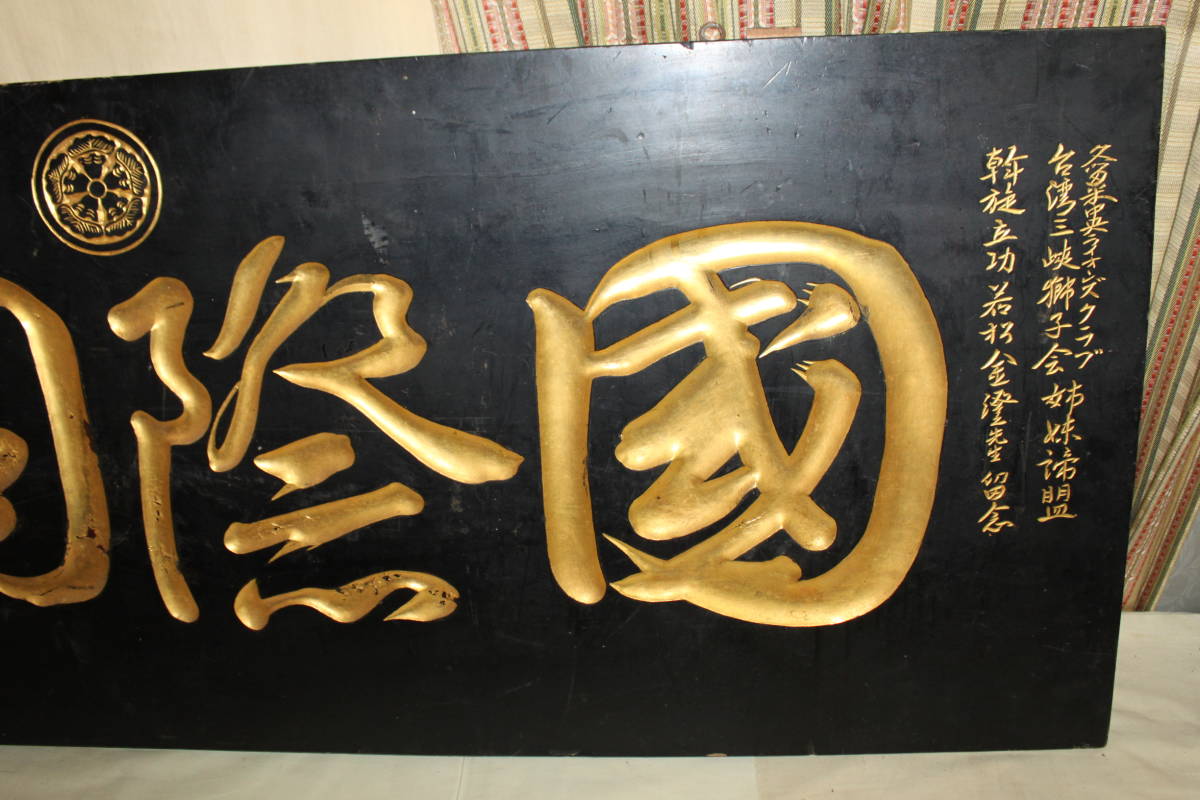 久留米中央ライオンズクラブ
台湾三峡獅子会姉妹諦盟
斡旋立功若松金澄先生留念
國際